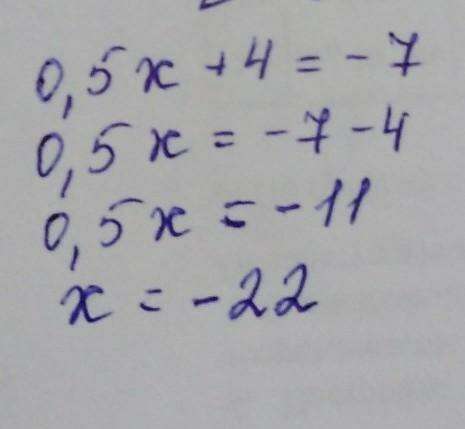 0,5x + 4 = -7
0,5x = -7 - 4
0,5x = -11
x = -22